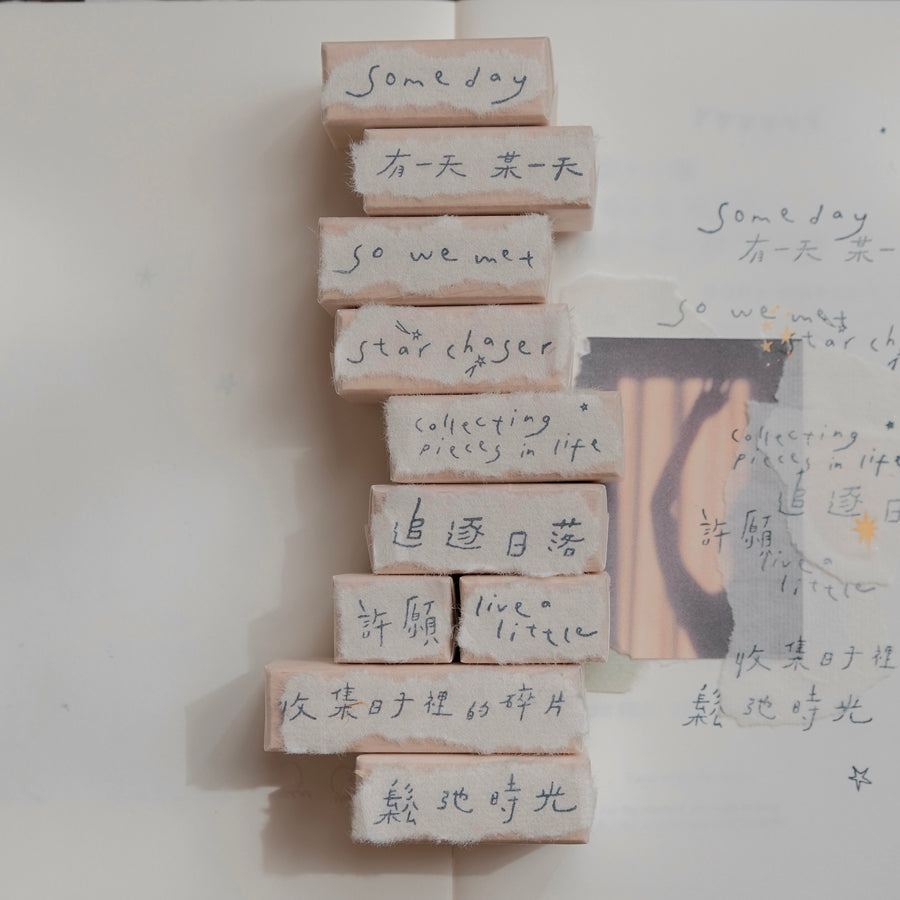 someday
有一天 某一天
so we met
star chaser
collecting
pieces in life
追逐日落
許願
live a
little
收集日子裡的碎片
鬆弛時光
someday
有一天 某一
so we met
star ch
collecting
pieces in life
追逐日
許願
live a
little
收集日子裡
鬆弛時光